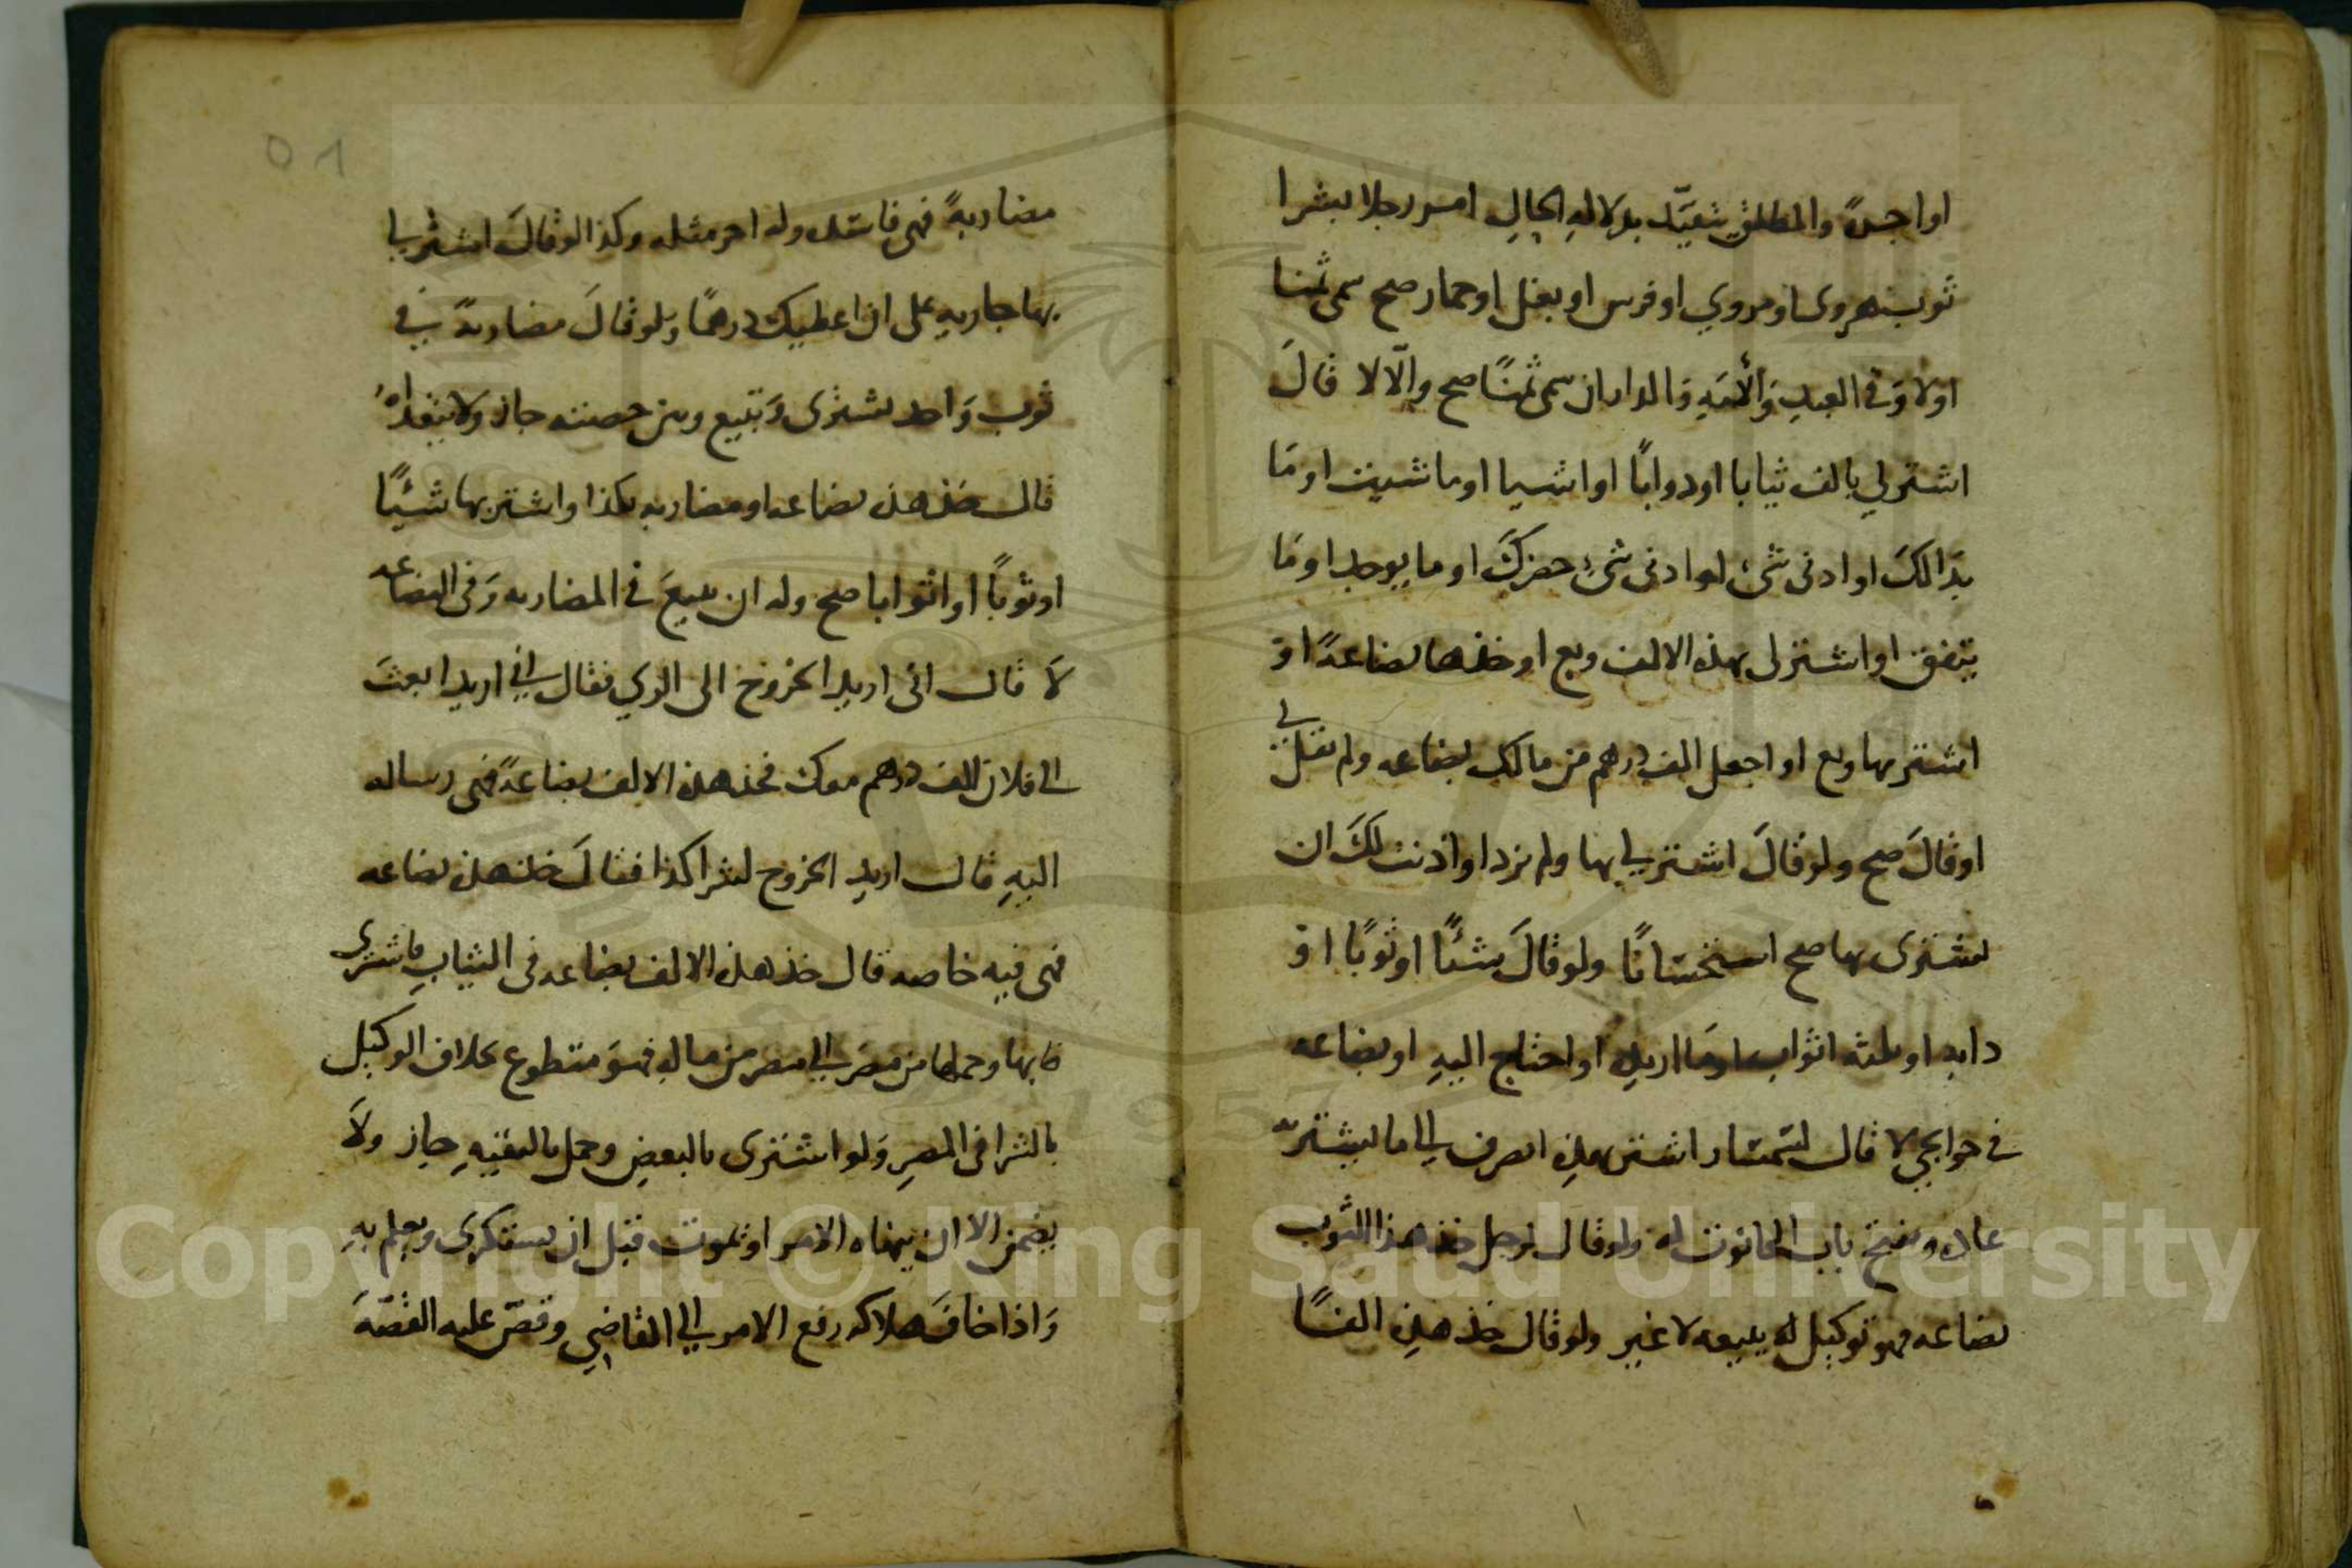 او اجرةً والمطلق يتقيّد بدلالهِ الحالِ امر رجلا بشرا
ثوب هروى او مروي او فرس او بغل او حمار صح سمى ثمنا
اولا وَفى العبدِ وَالأمَهِ وَالدار ان سمى ثمنًا صح والّا لا قالَ
اشتر لي بالف ثيابا او دوابًا او اشيا او ما شيت او مَا
بدَا لكَ او ادنى شئ او ادنى شئ حضركَ او ما يوجد او مَا
يتفق او اشتر لى بهذه الالف وبع او خذها بضاعةً او
اشتر بها وبع او اجعل الف درهم من مالك بضاعه ولم يقل لي
او قالَ صح ولو قالَ اشتر لي بها ولم يزد او اذنت لكَ ان
تشترى بها صح استحسَانًا ولو قالَ شئًا او ثوبًا او
دابه او ثلثه اثواب او مَا اريد او احتاج اليهِ او بضاعه
في حوايجي لا قال لسمسَار اشتر بهذِه انصرف الى ما يشتريه
عاده ويفتح باب الحانوت له ولو قال لرجل خذ هذا الثوب
بضاعه فهو توكيل له ببيعه لا غير ولو قال خذ هذِه الفًا
٥٨
مضاربةً فهى فاسده وله اجر مثله وكذا لو قالَ اشتر لي
بها جاريه على ان اعطيك درهمًا ولو قالَ مضاربةً في
ثوب وَاحد تشترى وَتبيع وبين حصته جاز ولا يتعداهُ
قال خذ هذه بضاعه او مضاربه بكذا واشتر بها شيئًا
او ثوبًا او اثوابا صح وله ان يبيعَ فى المضاربه وَفى البضاعه
لَا قال انى اريد الخروج الى الري فقال اني اريد ابعثَ
الى فلان الف درهم معك فخذ هذه الالف بضاعةً فهى رساله
اليهِ قال اريد الخروج لشرا كذا فقالَ خذ هذه بضاعه
فهى فيه خاصه قال خذ هذه الالف بضاعه فى الثيابِ فاشترى
بها وحملها من مصَر الى مصر من مالهِ فهوَ متطوع بخلاف الوكيل
بالشرا فى المصرِ وَلو اشترى بالبعض وحمل بالبقيهِ جاز ولَا
يضمن الا ان ينهاه الامر او يموت قبل ان يستكرى ويعلم بهِ
وَاذا خافَ هلاكه رفع الامر الى القاضي وقصّ عليه القصّهَ